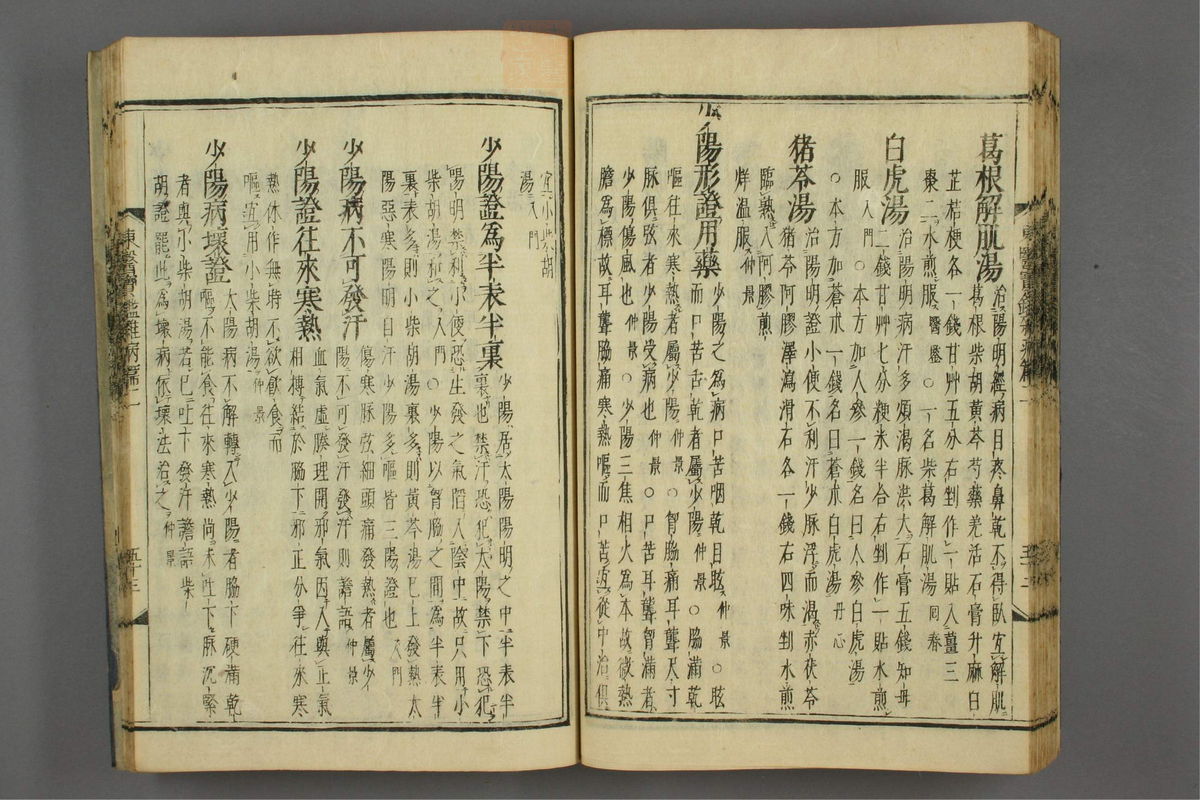 葛根解肌湯治陽明經病目疼鼻乾不得臥宜解肌
葛根柴胡黃芩芍藥羌活石膏升麻白
芷桔梗各一錢甘艸五分右剉作一貼入薑三
棗二水煎服醫鑑○一名柴葛解肌湯囘春
白虎湯治陽明病汗多煩渴脉洪大石膏五錢知母
二錢甘艸七分粳米半合右剉作一貼水煎
服入門○本方加人參一錢名曰人參白虎湯
○本方加蒼朮一錢名曰蒼朮白虎湯丹心
猪苓湯治陽明證小便不利汗少脉浮而渴赤茯苓
猪苓阿膠澤瀉滑石各一錢右四味剉水煎
臨熟入阿膠煎
烊溫服仲景
少陽形證用藥少陽之爲病口苦咽乾目眩仲景○眩
而口苦舌乾者屬少陽仲景○脇滿乾
嘔往來寒熱者屬少陽仲景○胷脇痛耳聾尺寸
脉俱弦者少陽受病也仲景○口苦耳聾胷滿者
少陽傷風也仲景○少陽三焦相火爲本故微熱
膽爲標故耳聾脇痛寒熱嘔而口苦宜從中治俱
宜小柴胡
湯入門
少陽證爲半表半裏少陽居太陽陽明之中半表半
裏也禁汗恐犯太陽禁下恐犯
陽明禁利小便恐生發之氣陷入陰中故只用小
柴胡湯和之入門○少陽以胷脇之間爲半表半
裏表多則小柴胡湯裏多則黃芩湯已上發熱太
陽惡寒陽明自汗少陽多嘔皆三陽證也入門
少陽病不可發汗傷寒脉弦細頭痛發熱者屬少
陽不可發汗發汗則譫語仲景
少陽證往來寒熱血氣虛腠理開邪氣因入與正氣
相搏結於脇下邪正分爭往來寒
熱休作無時不欲飮食而
嘔宜用小柴胡湯仲景
少陽病壞證太陽病不解轉入少陽者脇下硬滿乾
嘔不能食往來寒熱尚未吐下脉沉緊
者與小柴胡湯若已吐下發汗譫語柴
胡證罷此爲壞病依壞法治之仲景
東醫寶鑑雜病篇二
五十三